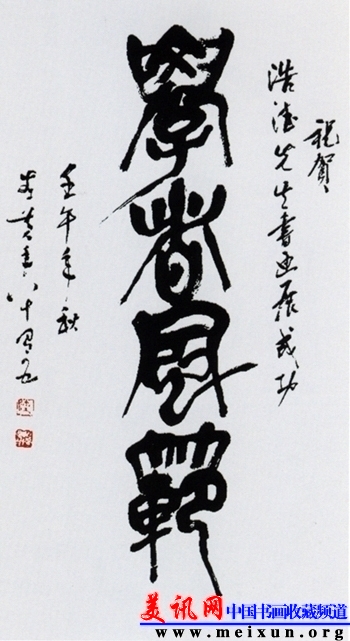 祝賀
浩先生書画展成功
學者風範
壬午年秋
八十
美讯网 中国书画收藏频道
www.meixun.org